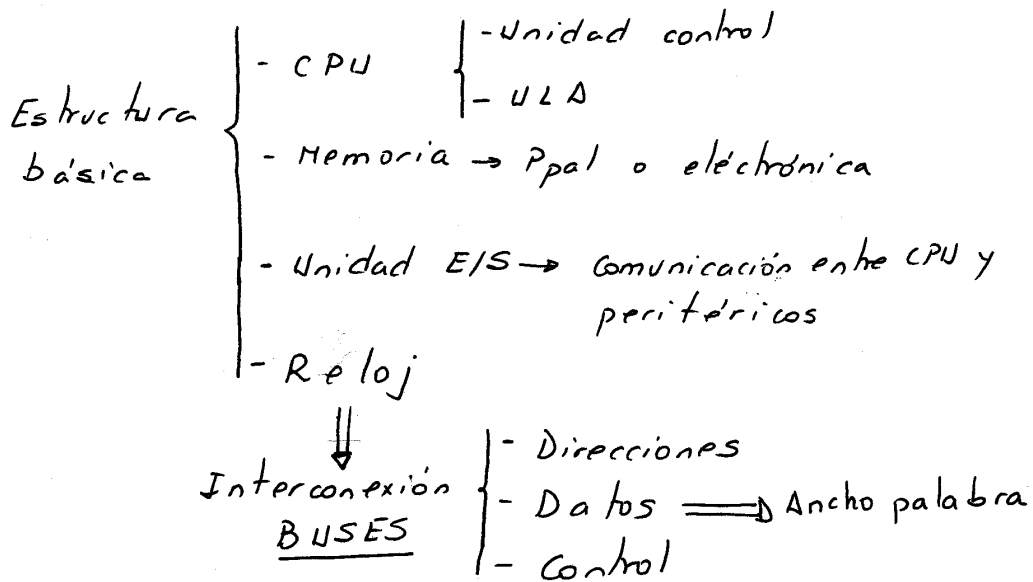 Estructura básica
- CPU
- Unidad control
- ULA
- Memoria → Ppal o eléctrónica
- Unidad E/S → comunicación entre CPU y
periféricos
- Reloj
Interconexión
BUSES
- Direcciones
- Datos ⇒ Ancho palabra
- Control